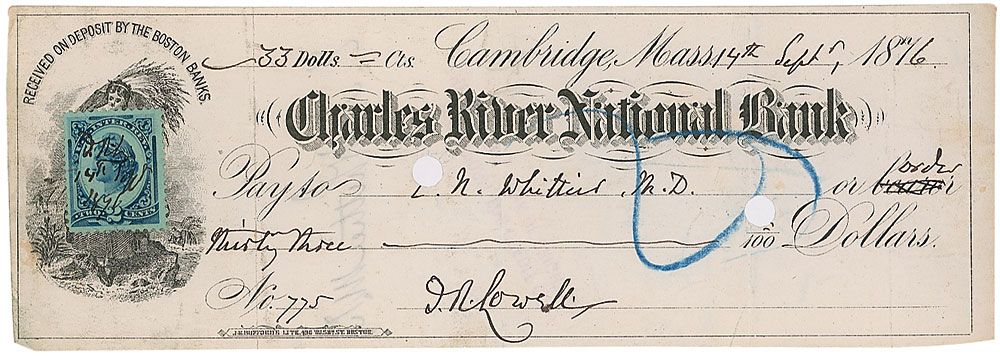 RECEIVED ON DEPOSIT BY THE BOSTON BANKS.
33 Dolls. = Cts. Cambridge, Mass. 14th Sept, 1876.
Charles River National Bank
Pay to N. Whittier M.D. or order
thirty three /100 Dollars.
No. 775 J. R. Lowell.
TWO CENTS
J.H. BUFFORD'S LITH. 490 WASH ST. BOSTON.